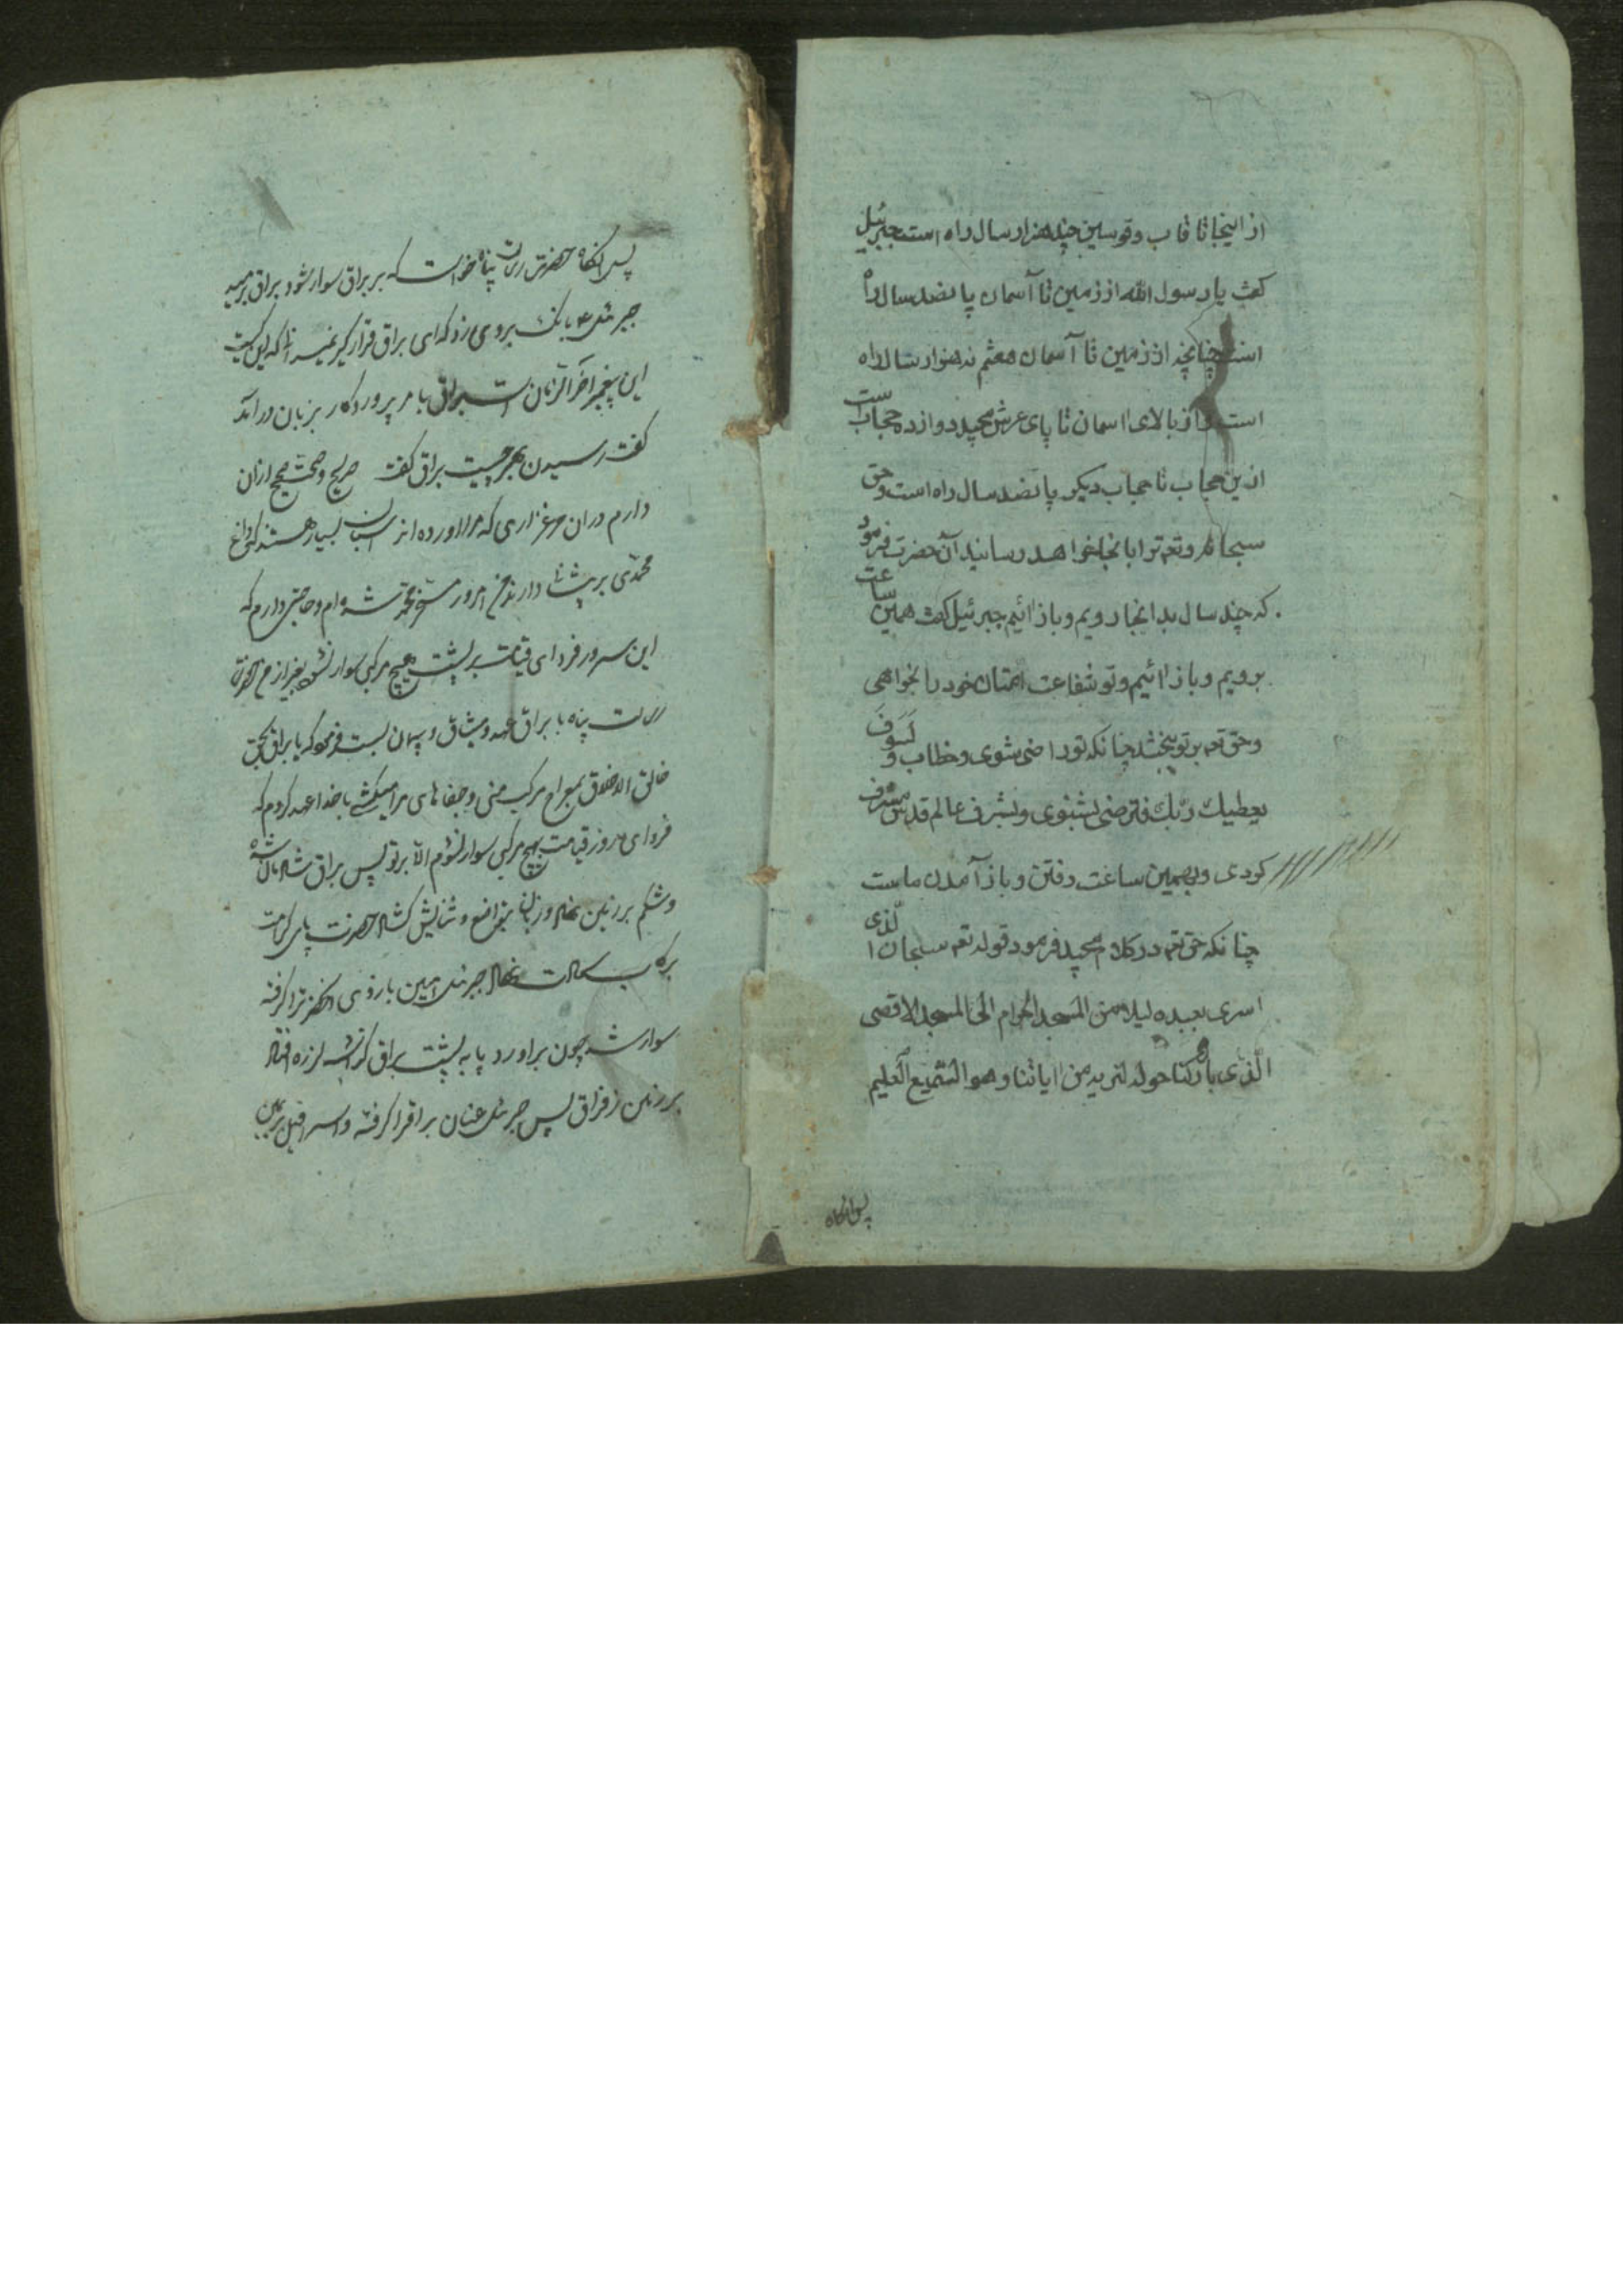 از اینجا تا قاب و قوسین چند هزار سال راه است جبرئیل
کفت یا رسول الله از زمین تا آسمان پانصد سال راه
است چنانچه از زمین تا آسمان هفتم نه هزار سال راه
است و از بالای اسمان تا پای عرش مجید دوازده حجاب است
ازین حجاب تا حجاب دیکر پانصد سال راه است و حق
سبحانه و تعم ترا بانجا خواهد رسانید آن حضرت فرمود
که چند سال بدانجا رویم و باز ائیم جبرئیل کفت همین ساعت
برویم و باز ائیم و تو شفاعت امتان خود را بخواهی
و حق تعم بر تو بخشد چنانکه تو راضی شوی و خطاب و لَسَوفَ
یعطیك ربّك فترضی بشنوی و بشرف عالم قدس مشرف
کردی و بهمین ساعت رفتن و باز آمدن ماست
چنانکه حق تعم در کلام مجید فرمود قوله تعم سبحان الّذی
اسری بعبده لیلا من المسجد الحرام الی المسجد الاقصی
الّذی بارکنا حوله لنریه من ایاتنا و هو السّمیع العلیم
پس انکاه
پس انکاه حضرت رسالت پناه خواست که بر براق سوار شود براق برمید
جبرئیل ع بانك بروی زد که ای براق قرار کیر نمیدانی که این کیست
این پیغمبر آخر الزمان است براق بامر پروردکار بزبان درآمد
کفت رسیدن بهر چیست براق کفت
دارم دران مرغزاری که مرا اورده اند اسبان بسیار هستند که داغ
محمدی بر پیشانی دارند من امروز مشرف شده ام و حاجتی دارم که
این سرور فردای قیامت بر پشت هیچ مرکبی سوار نشود بغیر از من حضرت
رسالت پناه با براق عهد و میثاق و پیمان بست فرمود که یا براق بحق
خالق الاخلاق بمعراج مرکب منی و جفاهای مرا میکشی با خدا عهد کردم که
فردای روز قیامت بهیچ مرکبی سوار نشوم الا بر تو پس براق شادمان شده
و شکم بر زمین نهاد و زبان بتواضع و ثنایش کشاد حضرت پای کرامت
برکاب سعادت نهاد جبرئیل امین بازوی انحضرت را کرفته
سوار شد چون براورد پا به پشت براق لرزه افتاد
بر زمین ز فراق پس جبرئیل عنان براق را کرفته و اسرافیل